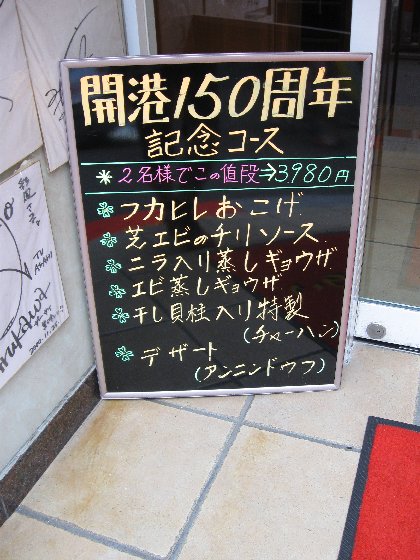 開港150周年
記念コース
＊2名様でこの値段⇒3980円
フカヒレおこげ
芝エビのチリソース
ニラ入り蒸しギョウザ
エビ蒸しギョウザ
干し貝柱入り特製
(チャーハン)
デザート
(アンニンドウフ)